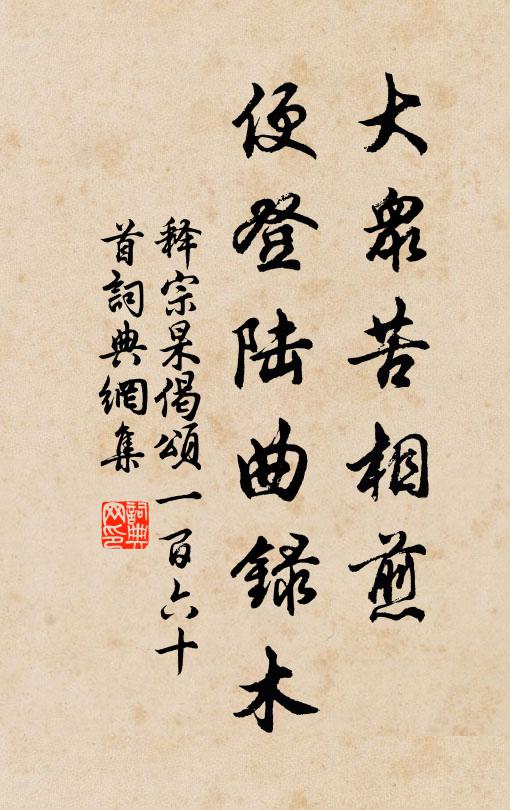 大眾苦相煎
便登陆曲録木
释宗杲偈頌一百六十
首詞典網集
詞典
网印